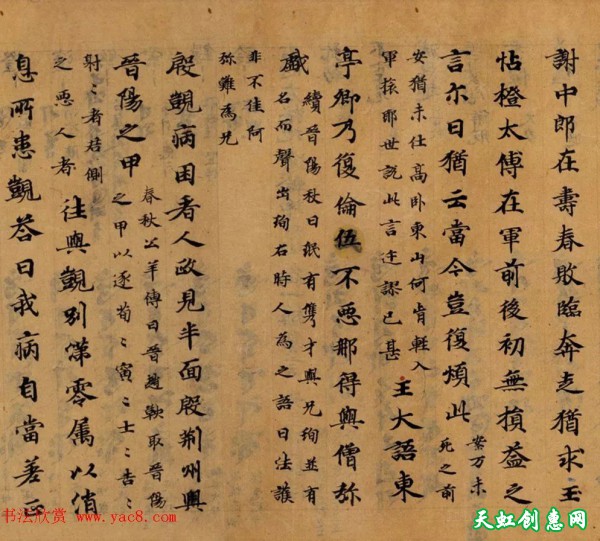 謝中郎在壽春敗臨奔走猶求玉
帖橙太傅在軍前後初無損益之
言尒日猶云當今豈復煩此
案万未
死之前
安猶未仕高卧東山何肯輕入
軍旅耶世説此言迂謬已甚
王大語東
亭卿乃復倫伍不惡那得與僧弥
戲
續晉陽秋曰珉有雋才與兄珣並有
名而聲出珣右時人為之語曰法護
非不佳阿
弥難為兄
殷覬病困看人政見半面殷荊州興
晉陽之甲
春秋公羊傳曰晉趙鞅取晉陽
之甲以逐荀〻寅〻士〻吉〻
射〻者君側
之惡人者
往與覬別涕零属以消
息所患覬荅曰我病自當差正
书法欣赏 www.yac8.com
天虹创惠网